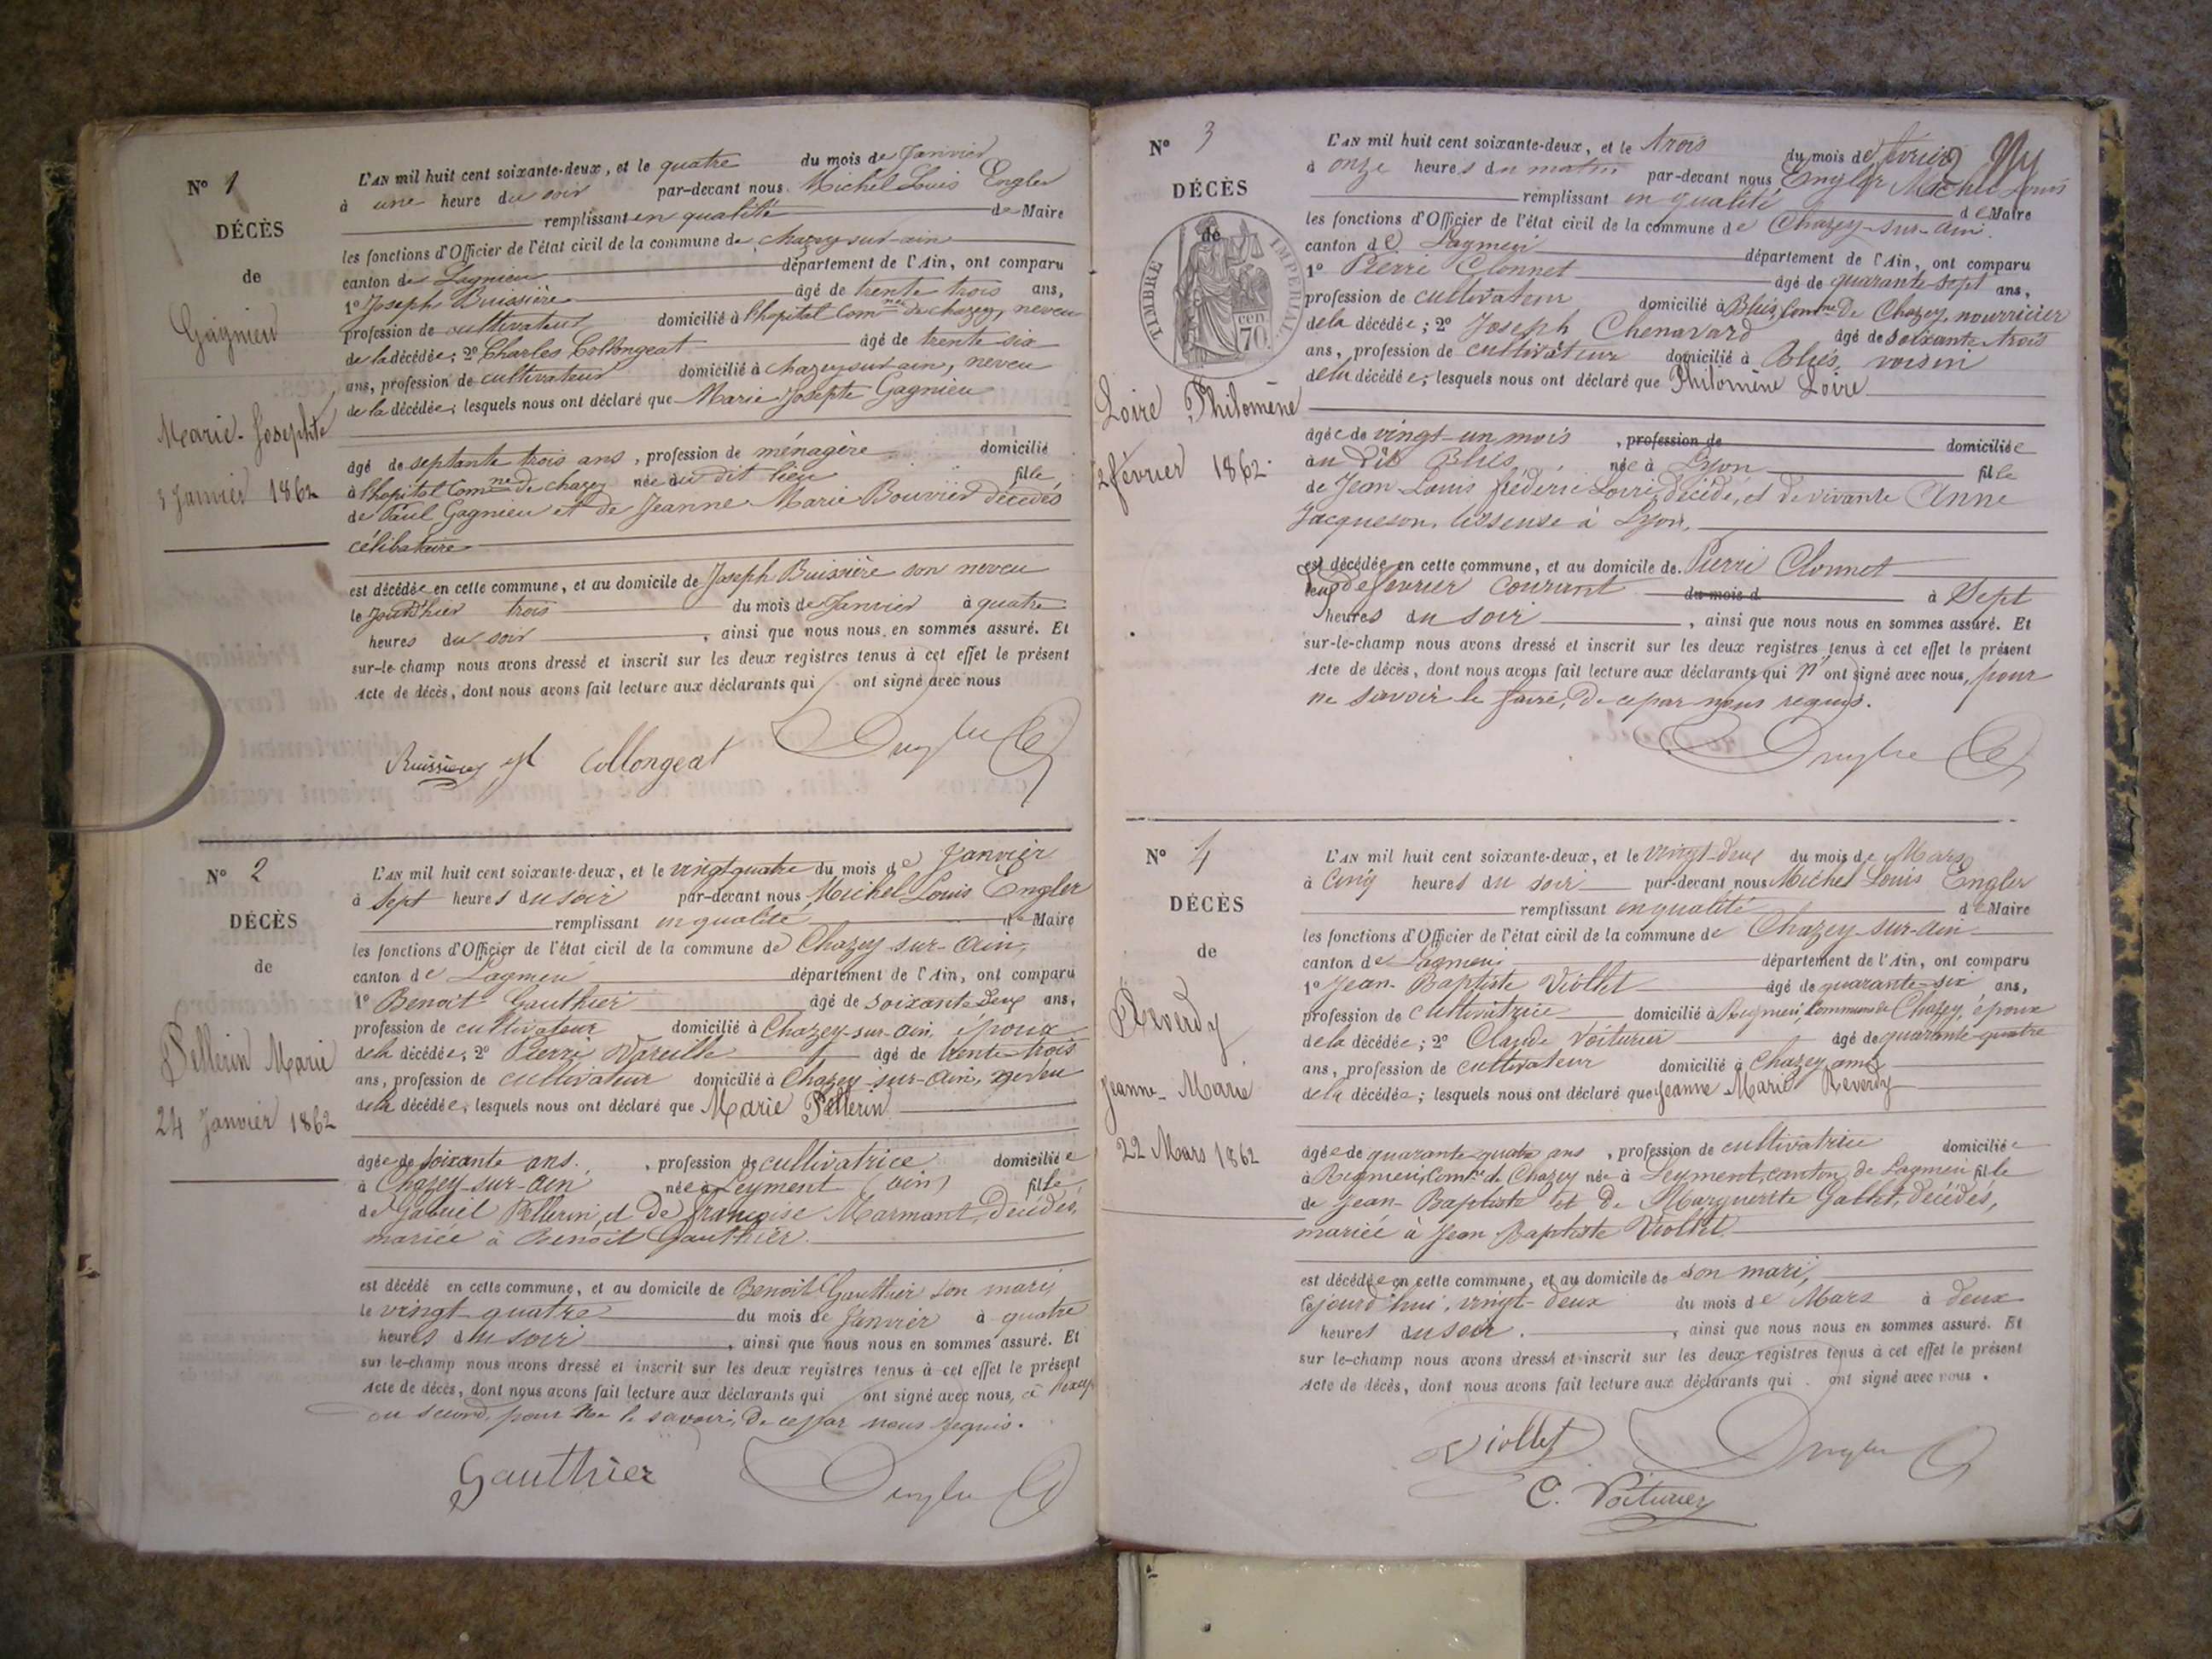 N° 1
DÉCÈS
de
Gagnieu
Marie-Josephte
3 Janvier 1862
L'AN mil huit cent soixante-deux, et le quatre du mois de Janvier
à une heure du soir par-devant nous Michel Louis Engler
remplissant en qualité de Maire
les fonctions d'Officier de l'état civil de la commune de chazey-sur-ain
canton de Lagnieu département de l'Ain, ont comparu
1° Joseph Buissière âgé de trente trois ans,
profession de cultivateur domicilié à l'hopital Comne de chazey, neveu
de la décédée; 2° Charles Collongeat âgé de trente-six
ans, profession de cultivateur domicilié à chazey sur ain, neveu
de la décédée; lesquels nous ont déclaré que Marie Josephte Gagnieu
âgé de septante trois ans, profession de ménagère domicilié
à l'hopital Comne de chazey née au dit lieu fille
de Paul Gagnieu et de Jeanne-Marie Bouvier décédés
célibataire
est décédée en cette commune, et au domicile de Joseph Buissière son neveu
le jourd'hier trois du mois de Janvier à quatre
heures du soir, ainsi que nous nous en sommes assuré. Et
sur-le-champ nous avons dressé et inscrit sur les deux registres tenus à cet effet le présent
Acte de décès, dont nous avons fait lecture aux déclarants qui ont signé avec nous
Collongeat
N° 2
DÉCÈS
de
Pellerin Marie
24 Janvier 1862
L'AN mil huit cent soixante-deux, et le vingt quatre du mois de Janvier
à sept heures du soir par-devant nous Michel Louis Engler
remplissant en qualité de Maire
les fonctions d'Officier de l'état civil de la commune de Chazey-sur-Ain,
canton de Lagnieu département de l'Ain, ont comparu
1° Benoit Gauthier âgé de soixante deux ans,
profession de cultivateur domicilié à Chazey-sur-ain, époux
de la décédée; 2° Pierre Vareille âgé de trente-trois
ans, profession de cultivateur domicilié à Chazey-sur-Ain, neveu
de la décédée, lesquels nous ont déclaré que Marie Pellerin
âgée de soixante ans, profession de cultivatrice domiciliée
à Chazey-sur-Ain née à Leyment (Ain) fille
de Gabriel Pellerin, et de françoise Marmont, décédés,
mariée à Benoit Gauthier
est décédé en cette commune, et au domicile de Benoit Gauthier son mari,
le vingt-quatre du mois de Janvier à quatre
heures du soir, ainsi que nous nous en sommes assuré. Et
sur-le-champ nous avons dressé et inscrit sur les deux registres tenus à cet effet le présent
Acte de décès, dont nous avons fait lecture aux déclarants qui ont signé avec nous,
du second, pour ne le savoir, de ce par nous requis.
Gauthier
N° 3
DÉCÈS
de
TIMBRE IMPÉRIAL
70 cen
Loire Philomène
2 février 1862
L'AN mil huit cent soixante-deux, et le trois du mois de février
à onze heures du matin par-devant nous Engler Michel Louis
remplissant en qualité de Maire
les fonctions d'Officier de l'état civil de la commune de Chazey-sur-Ain
canton de Lagnieu département de l'Ain, ont comparu
1° Pierre Clonnet âgé de quarante-sept ans,
profession de cultivateur domicilié à Bliés, Comne De Chazey, nourricier
de la décédée; 2° Joseph Chenavard âgé de soixante trois
ans, profession de cultivateur domicilié à Bliés, voisin
de la décédée; lesquels nous ont déclaré que Philomène Loire
âgée de vingt-un mois, profession de domiciliée
au dit Bliés, née à Lyon fille
de Jean-Louis fréderic Loire, décédé, et de vivante Anne
Jacqueson, tisseuse à Lyon,
est décédée en cette commune, et au domicile de Pierre Clonnet
de février courant du mois d à Sept
heures du soir, ainsi que nous nous en sommes assuré. Et
sur-le-champ nous avons dressé et inscrit sur les deux registres tenus à cet effet le présent
Acte de décès, dont nous avons fait lecture aux déclarants qui n'ont signé avec nous, pour
ne savoir le faire, de ce par nous requis.
N° 4
DÉCÈS
de
Reverdy
Jeanne-Marie
22 Mars 1862
L'AN mil huit cent soixante-deux, et le vingt-deux du mois de Mars
à cinq heures du soir par-devant nous Michel Louis Engler
remplissant en qualité de Maire
les fonctions d'Officier de l'état civil de la commune de Chazey-sur-Ain
canton de Lagnieu département de l'Ain, ont comparu
1° Jean-Baptiste Viollet âgé de quarante-six ans,
profession de cultivatrice domicilié à Rignieu, Commune de Chazey, époux
de la décédée; 2° Claude Voiturier âgé de quarante-quatre
ans, profession de cultivateur domicilié à Chazey, ami
de la décédée; lesquels nous ont déclaré que Jeanne Marie Reverdy
âgée de quarante-quatre ans, profession de cultivatrice domiciliée
à Rignieu, Comne de Chazey née à Leyment, canton de Lagnieu fille
de Jean-Baptiste et de Marguerite Gallet, décédés,
mariée à Jean Baptiste Viollet
est décédée en cette commune, et au domicile de son mari,
le jourd'hui, vingt-deux du mois de Mars à deux
heures du soir, ainsi que nous nous en sommes assuré. Et
sur le-champ nous avons dressé et inscrit sur les deux registres tenus à cet effet le présent
Acte de décès, dont nous avons fait lecture aux déclarants qui ont signé avec nous.
Viollet
C. Voiturier